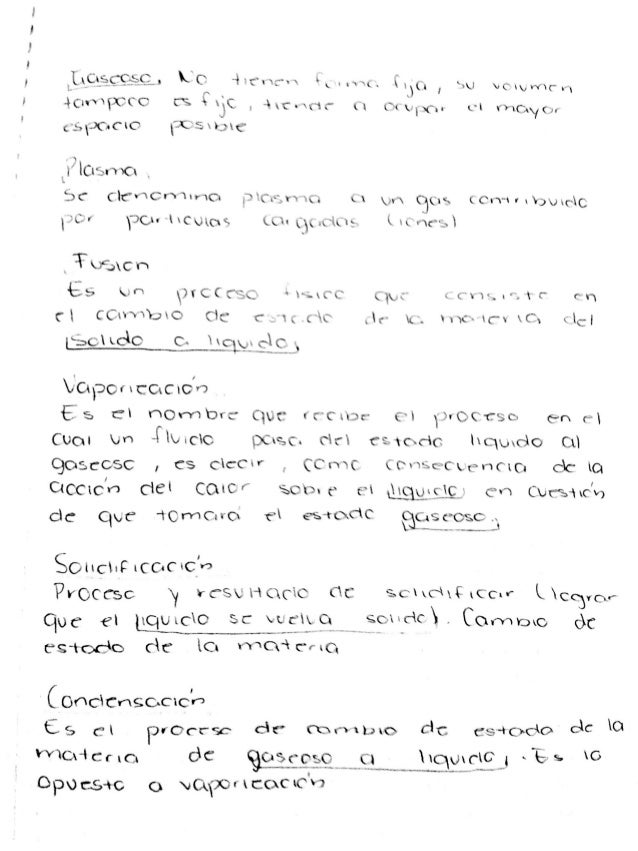 Gaseoso, No tienen forma fija, su volumen
tampoco es fijo, tiende a ocupar el mayor
espacio posible
Plasma
Se denomina plasma a un gas contribuido
por particulas cargadas (iones)
Fusion
Es un proceso fisico que consiste en
el cambio de estado de la materia del
solido a liquido,
Vaporización
Es el nombre que recibe el proceso en el
cual un fluido pasa del estado liquido al
gaseoso, es decir, como consecuencia de la
acción del calor sobre el liquido en cuestión
de que tomará el estado gaseoso.
Solidificación
Proceso y resultado de solidificar (lograr
que el liquido se vuelva solido). Cambio de
estado de la materia
Condensación
Es el proceso de cambio de estado de la
materia de gaseoso a liquido. Es lo
opuesto a vaporización